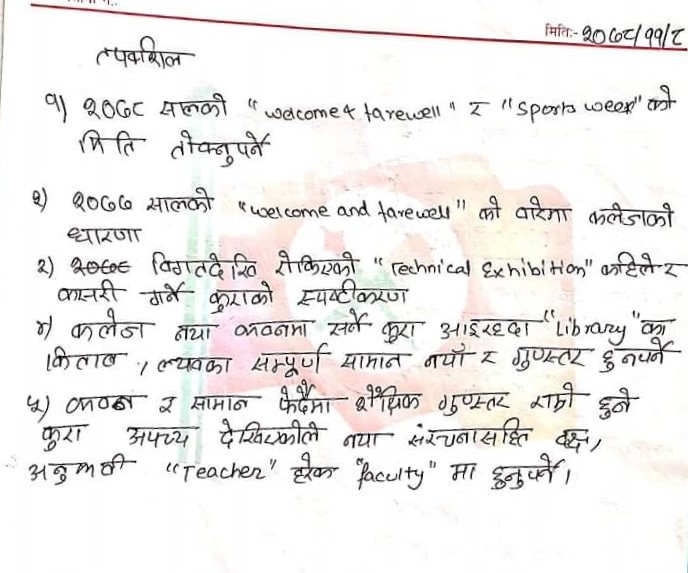 मितिः- २०७८/११/८
तपकशिल
१) २०७८ सालको "welcome & farewell" र "Sports week" को
मिति तोक्नुपर्ने
२) २०७७ सालको "welcome and farewell" को बारेमा कलेजको
धारणा
३) विगतदेखि रोकिएको "Technical Exhibition" कहिले र
कसरी गर्ने कुराको स्पष्टीकरण
४) कलेज नया भवनमा सर्ने कुरा आइरहदा "Library" का
किताब, ल्यावका सम्पूर्ण सामान नयाँ र गुणस्तर हुनुपर्ने
५) भवन र सामान फेर्दैमा शैक्षिक गुणस्तर राम्रो हुने
कुरा अपच्य देखिएकोले नया संरचनासहित दक्ष,
अनुभवी "Teacher" हरेक "faculty" मा हुनुपर्ने।